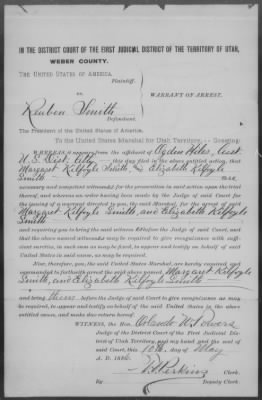 IN THE DISTRICT COURT OF THE FIRST JUDICIAL DISTRICT OF THE TERRITORY OF UTAH,
WEBER COUNTY.
THE UNITED STATES OF AMERICA,
Plaintiff,
vs.
WARRANT OF ARREST.
Reuben Smith
Defendant.
The President of the United States of America,
To the United States Marshal for Utah Territory, Greeting:
WHEREAS, It appears from the affidavit of Ogden Hiles, Asst.
U.S. Dist. Atty this day filed in the above entitled action, that
Margaret Kilfoyle Smith, & Elizabeth Kilfoyle
Smith are
necessary and competent witnesses for the prosecution in said action upon the trial
thereof, and whereas an order having been made by the Judge of said Court for
the issuing of a warrant directed to you, the said Marshal, for the arrest of said
Margaret Kilfoyle Smith, and Elizabeth Kilfoyle
Smith
and requiring you to bring the said witnesses before the Judge of said Court, and
that the above named witnesses may be required to give recognizance with suffi-
cient surities, in such sum as may be fixed, to appear and testify on behalf of said
United States in said cause, as may be required.
Now, therefore, you, the said United States Marshal, are hereby required and
commanded to forthwith arrest the said above named Margaret Kilfoyle
Smith, and Elizabeth Kilfoyle Smith
and bring them before the Judge of said Court to give recognizance as may
be required, to appear and testify on behalf of the said United States in the above
entitled cause, and make due return hereof.
WITNESS, the Hon. Orlando W. Powers
Judge of the District Court of the First Judicial Dis-
trict of Utah Territory, and my hand and the seal of
said Court, this day of May
A. D. 188
Perkins Clerk.
By Deputy Clerk.